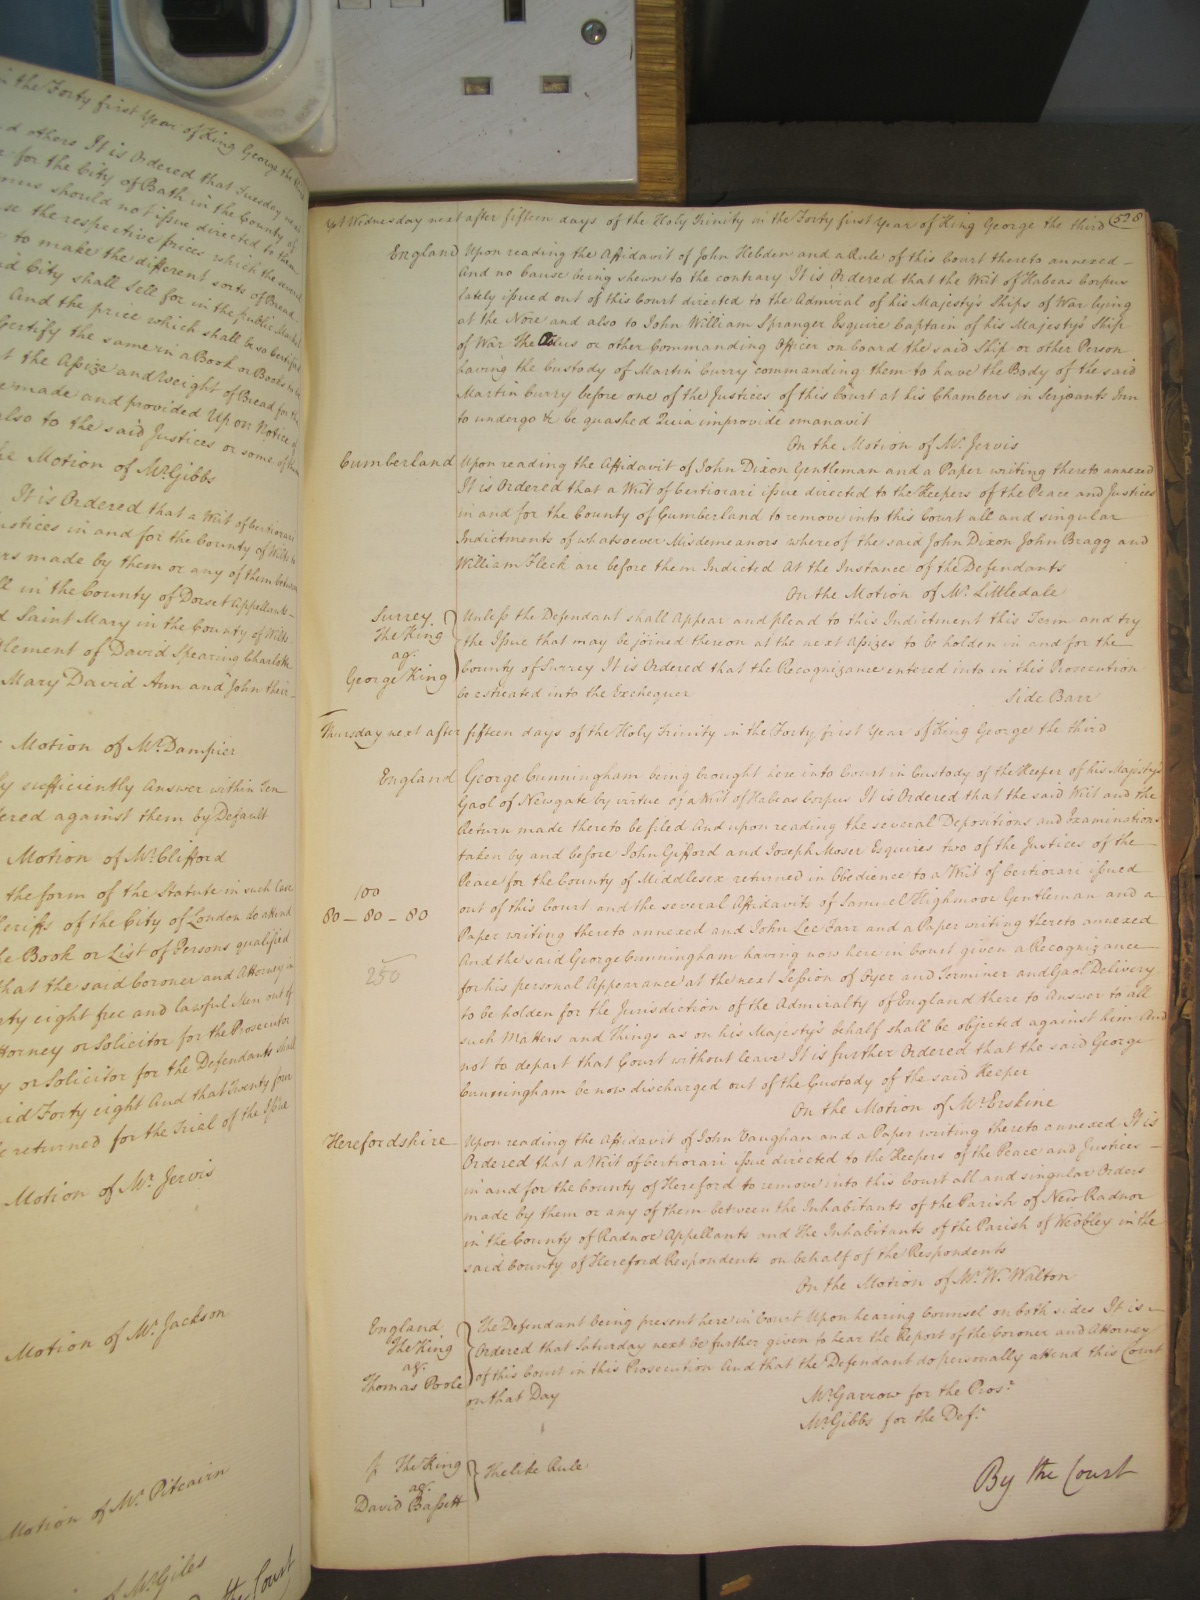 in the Forty first Year of King George the
and others It is Ordered that Tuesday
for the City of Bath in the County of
should not issue directed to them
the respective prices which the several
to make the different sorts of Bread
City shall sell for in the public Market
And the price which shall be so Certified
Certify the same in a Book or Books
the Assize and Weight of Bread for the
made and provided Upon Notice
also to the said Justices or some of them
Motion of Mr. Gibbs
It is Ordered that a Writ of Certiorari
Justices in and for the County of Wilts
made by them or any of them between
in the County of Dorset Appellants
Saint Mary in the County of Wilts
Settlement of David Spearing Charlotte
Mary David Ann and John their
Motion of Mr. Dampier
sufficiently Answer within Ten
against them by Default
Motion of Mr. Clifford
the form of the Statute in such Case
Sheriffs of the City of London do attend
the Book or List of Persons qualified
that the said Coroner and Attorney
eight free and lawful Men out of
Attorney or Solicitor for the Prosecutor
or Solicitor for the Defendants shall
said Forty eight And that Twenty four
be returned for the Trial of the Issue
Motion of Mr. Jervis
Motion of Mr. Jackson
Motion of Mr. Pitcairn
of Mr. Giles
the Court
Wednesday next after fifteen days of the Holy Trinity in the Forty first Year of King George the third 528
England Upon reading the Affidavit of John Hebden and a Rule of this Court thereto annexed
And no Cause being shewn to the contrary It is Ordered that the Writ of Habeas Corpus
lately issued out of this Court directed to the Admiral of his Majesty's Ships of War lying
at the Nore and also to John William Spranger Esquire Captain of his Majesty's Ship
of War The or other Commanding Officer on board the said Ship or other Person
having the Custody of Martin Curry commanding them to have the Body of the said
Martin Curry before one of the Justices of this Court at his Chambers in Serjeants Inn
to undergo &c be quashed Quia improvide emanavit
On the Motion of Mr. Jervis
Cumberland Upon reading the Affidavit of John Dixon Gentleman and a Paper writing thereto annexed
It is Ordered that a Writ of Certiorari issue directed to the Keepers of the Peace and Justices
in and for the County of Cumberland to remove into this Court all and singular
Indictments of whatsoever Misdemeanors whereof the said John Dixon John Bragg and
William Fleck are before them Indicted At the Instance of the Defendants
On the Motion of Mr. Littledale
Surrey
The King
agt.
George King
Unless the Defendant shall Appear and plead to this Indictment this Term and try
the Issue that may be joined thereon at the next Assizes to be holden in and for the
County of Surrey It is Ordered that the Recognizance entered into in this Prosecution
be estreated into the Exchequer Side Barr
Thursday next after fifteen days of the Holy Trinity in the Forty first Year of King George the third
England George Cunningham being brought here into Court in Custody of the Keeper of his Majesty's
Gaol of Newgate by virtue of a Writ of Habeas Corpus It is Ordered that the said Writ and the
Return made thereto be filed And upon reading the several Depositions and Examinations
taken by and before John Gifford and Joseph Moser Esquires two of the Justices of the
Peace for the County of Middlesex returned in Obedience to a Writ of Certiorari issued
100
80 – 80 – 80
250
out of this Court and the several Affidavits of Samuel Highmoor Gentleman and a
Paper writing thereto annexed and John Lee Farr and a Paper writing thereto annexed
And the said George Cunningham having now here in Court given a Recognizance
for his personal Appearance at the next Session of Oyer and Terminer and Gaol Delivery
to be holden for the Jurisdiction of the Admiralty of England there to Answer to all
such Matters and things as on his Majesty's behalf shall be objected against him And
not to depart that Court without leave It is further Ordered that the said George
Cunningham be now discharged out of the Custody of the said Keeper
On the Motion of Mr. Erskine
Herefordshire Upon reading the Affidavit of John Vaughan and a Paper writing thereto annexed It is
Ordered that a Writ of Certiorari issue directed to the Keepers of the Peace and Justices
in and for the County of Hereford to remove into this Court all and singular Orders
made by them or any of them between the Inhabitants of the Parish of New Radnor
in the County of Radnor Appellants and The Inhabitants of the Parish of Weobley in the
said County of Hereford Respondents on behalf of the Respondents
On the Motion of Mr. W. Walton
England
The King
agt.
Thomas Poole
The Defendant being present here in Court Upon hearing Counsel on both sides It is
Ordered that Saturday next be further given to hear the Report of the Coroner and Attorney
of this Court in this Prosecution And that the Defendant do personally attend this Court
on that Day
Mr. Garrow for the Prosr.
Mr. Gibbs for the Deft.
The King
agt.
David Bassett
The like Rule
By the Court